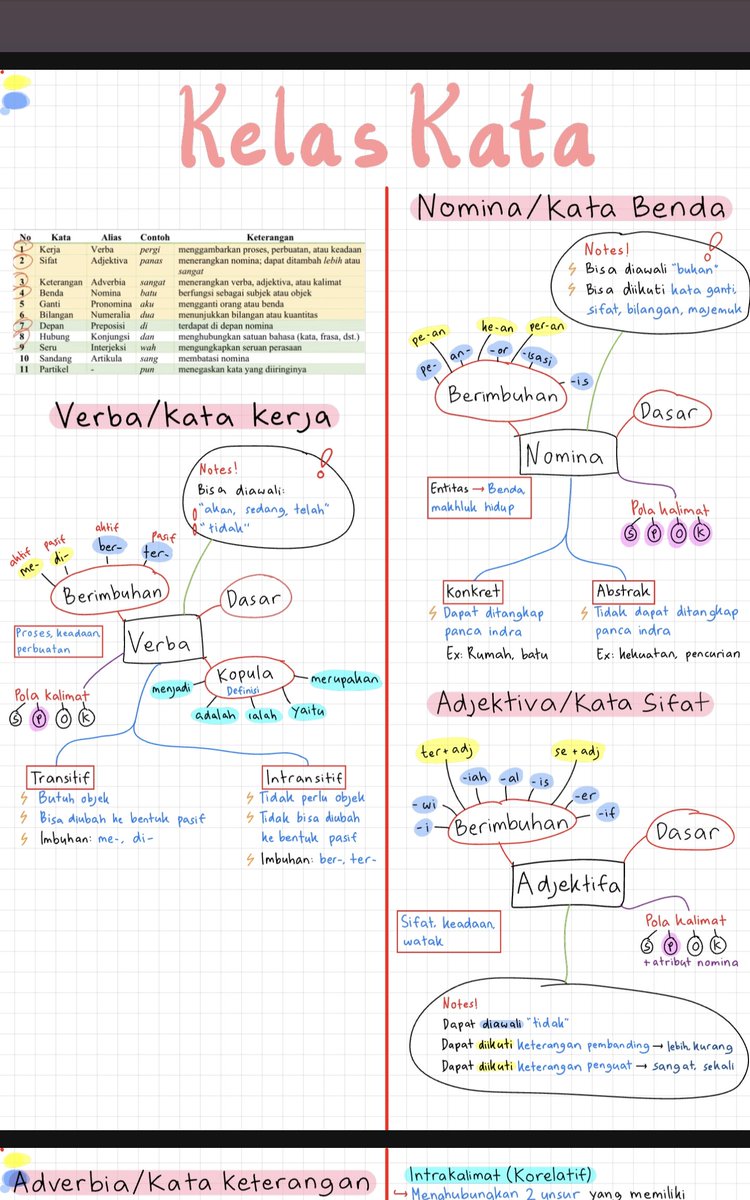 Kelas Kata
No Kata Alias Contoh Keterangan
1 Kerja Verba pergi menggambarkan proses, perbuatan, atau keadaan
2 Sifat Adjektiva panas menerangkan nomina; dapat ditambah lebih atau
sangat
3 Keterangan Adverbia sangat menerangkan verba, adjektiva, atau kalimat
4 Benda Nomina batu berfungsi sebagai subjek atau objek
5 Ganti Pronomina aku mengganti orang atau benda
6 Bilangan Numeralia dua menunjukkan bilangan atau kuantitas
7 Depan Preposisi di terdapat di depan nomina
8 Hubung Konjungsi dan menghubungkan satuan bahasa (kata, frasa, dst.)
9 Seru Interjeksi wah mengungkapkan seruan perasaan
10 Sandang Artikula sang membatasi nomina
11 Partikel - pun menegaskan kata yang diiringinya
Verba/Kata Kerja
Notes!
Bisa diawali:
"akan, sedang, telah"
"tidak"
aktif pasif aktif pasif
me- di- ber- ter-
Berimbuhan
Dasar
Proses, keadaan,
perbuatan
Verba
Kopula
Definisi
menjadi
merupakan
adalah ialah yaitu
Pola kalimat
S P O K
Transitif
Butuh objek
Bisa diubah ke bentuk pasif
Imbuhan: me-, di-
Intransitif
Tidak perlu objek
Tidak bisa diubah
ke bentuk pasif
Imbuhan: ber-, ter-
Nomina/Kata Benda
Notes!
Bisa diawali "bukan"
Bisa diikuti kata ganti
sifat, bilangan, majemuk
pe-an ke-an per-an
pe- an- -or -isasi -is
Berimbuhan
Dasar
Nomina
Entitas → Benda,
makhluk hidup
Pola kalimat
S P O K
Konkret
Dapat ditangkap
panca indra
Ex: Rumah, batu
Abstrak
Tidak dapat ditangkap
panca indra
Ex: kekuatan, pencurian
Adjektiva/Kata Sifat
ter+adj se+adj
-i -wi -iah -al -is -er -if
Berimbuhan
Dasar
Adjektifa
Sifat, keadaan,
watak
Pola kalimat
S P O K
+atribut nomina
Notes!
Dapat diawali "tidak"
Dapat diikuti keterangan pembanding → lebih, kurang
Dapat diikuti keterangan penguat → sangat, sekali
Adverbia/Kata keterangan
Intrakalimat (Korelatif)
→ Menghubungkan 2 unsur yang memiliki